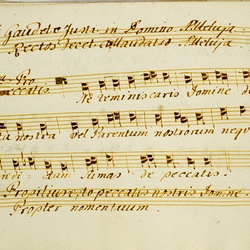 Gaudete Justi in Domino. Alleluja.
Rectos decet collaudatio. Alleluja
Pro
peccatis Ne reminiscaris Domine de
nostra vel Parentum nostrorum neq
di tam sumas de peccatis.
Propitius esto peccatis nostris Domine
Propter nomen tuum.